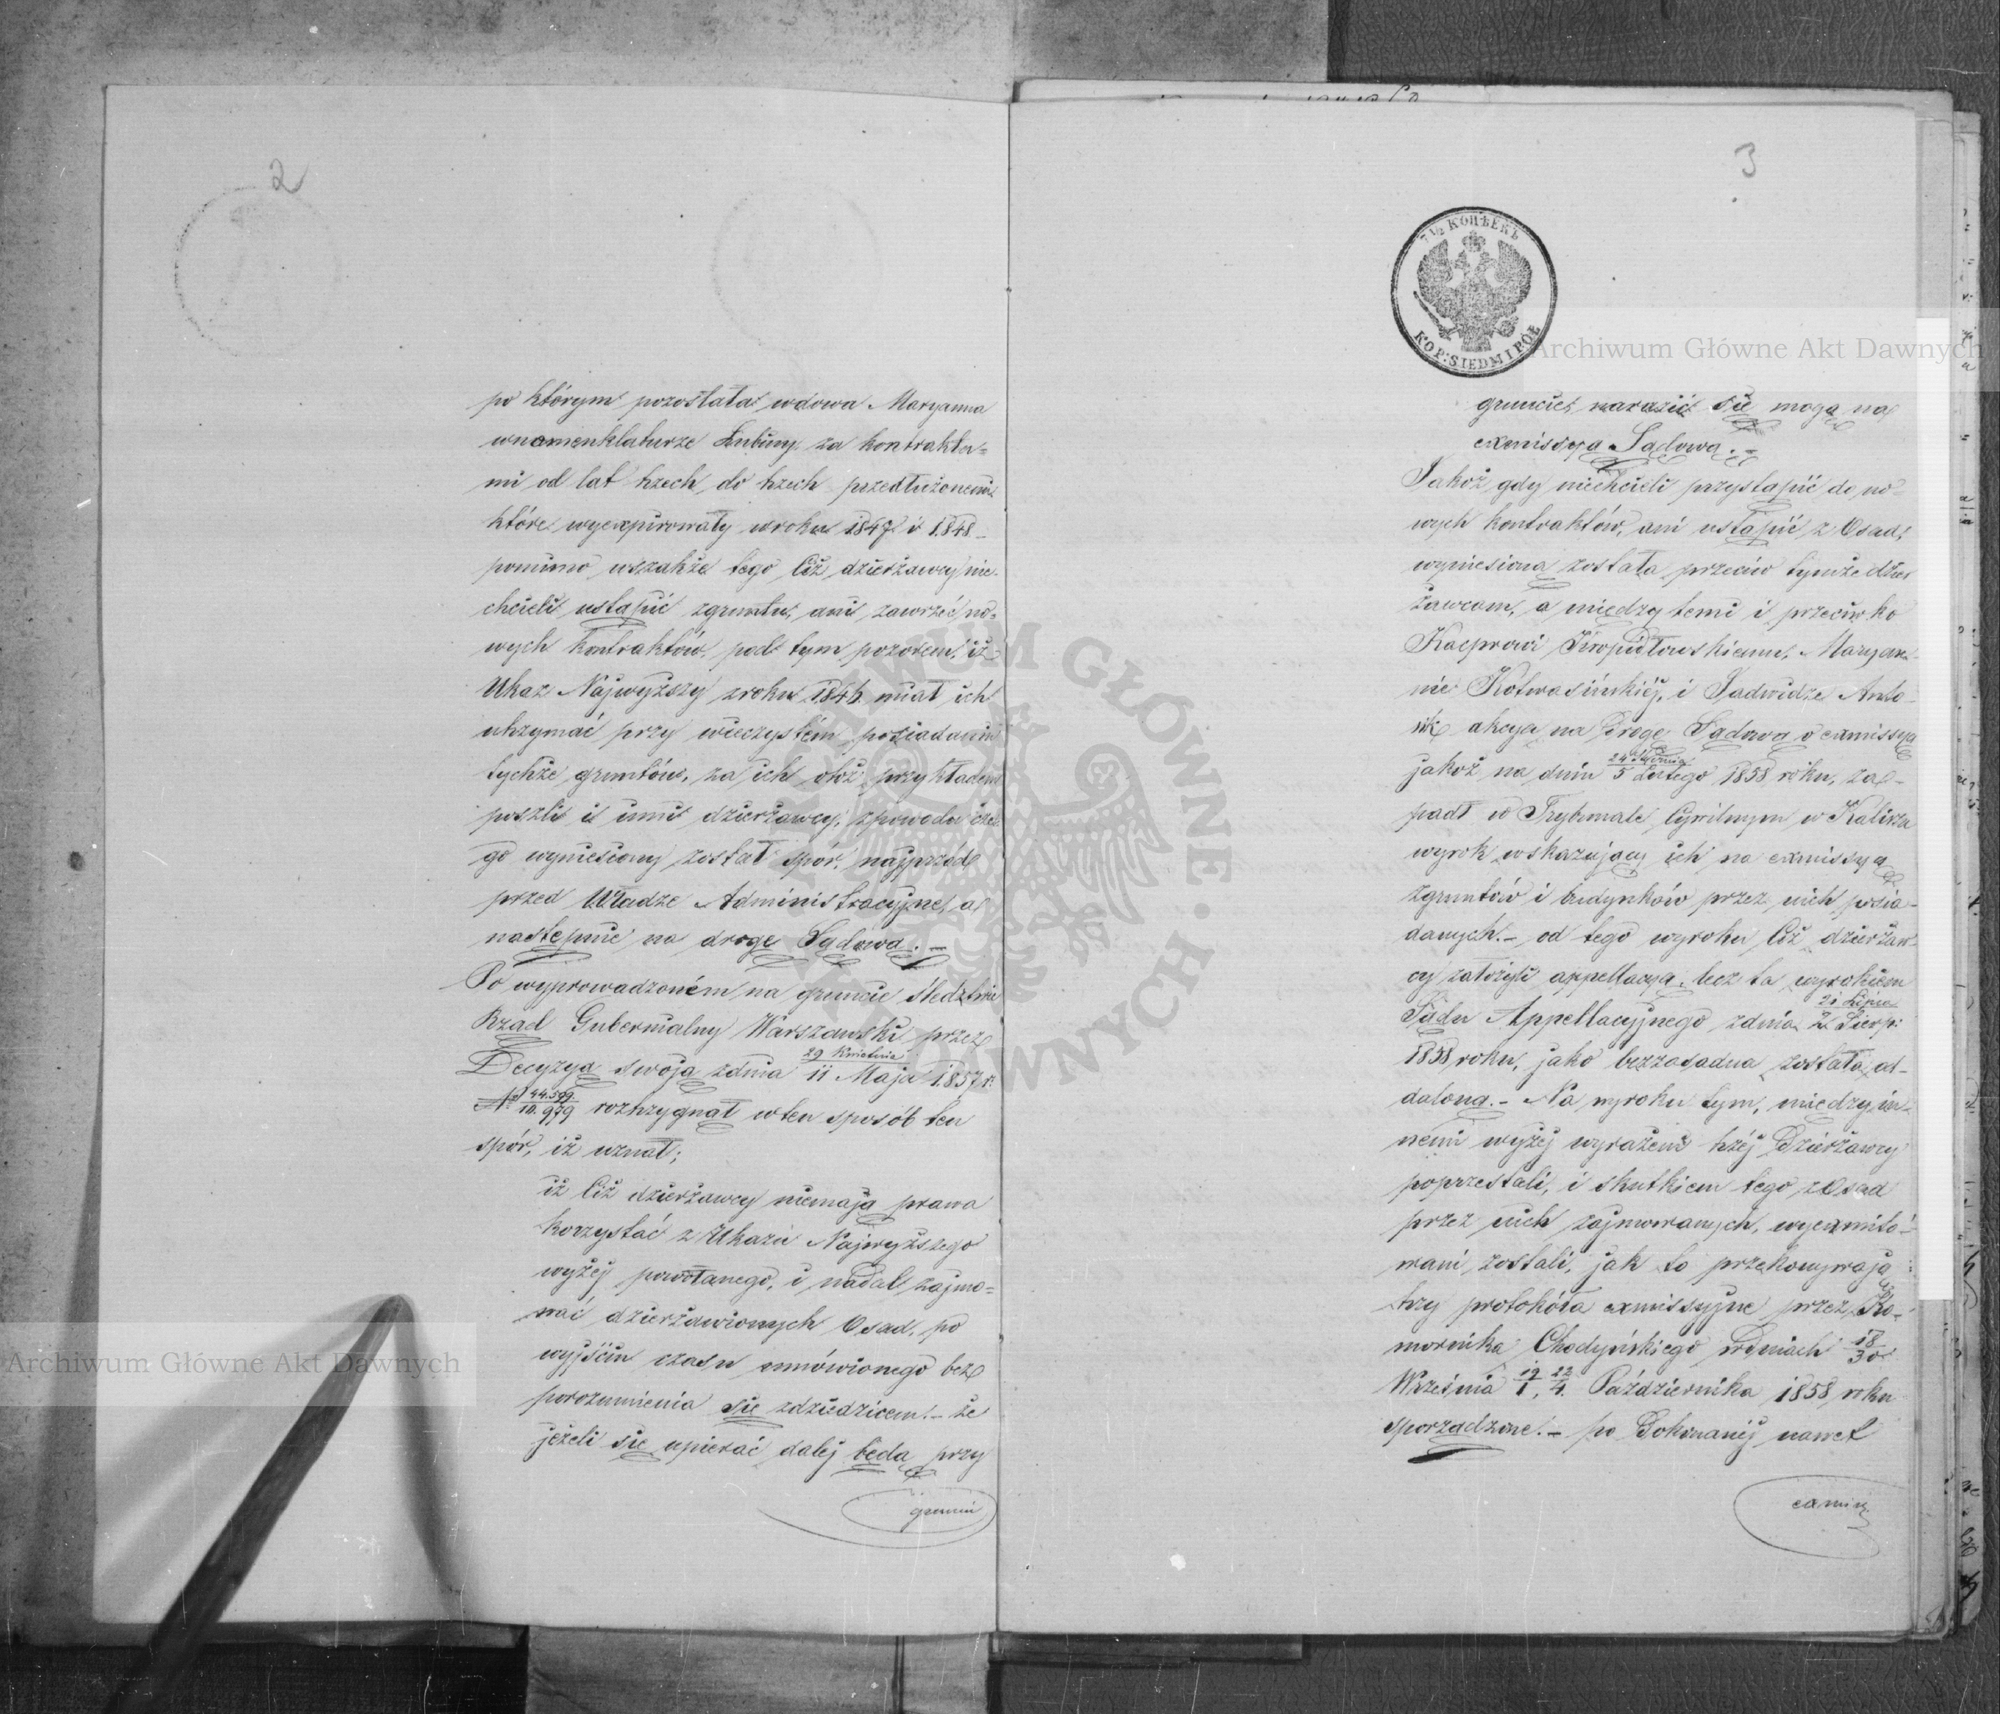 2
po którym pozostała wdowa Maryanna
w nomenklaturze Lubiny za kontrakta-
mi od lat trzech do trzech przedłużonemi
które wyexpirowały w roku 1847 i 1848 –
pomimo wszakże tego Ciż dzierżawcy nie
chcieli ustąpić z gruntu, ani zawrzeć no-
wych kontraktów, pod tym pozorem, iż
Ukaz Najwyższy z roku 1846 miał ich
utrzymać przy wieczystém posiadaniu
tychże gruntów, za ich otóż przykładem
poszli i inni dzierżawcy, z powodu cze
go wyniesiony został spór, najprzód
przed Władze Administracyjne, a
następnie na drogę Sądową. –
Po wyprowadzoném na gruncie śledztwie
Rząd Gubernialny Warszawski przez
Decyzyą swoją z dnia 29 Kwietnia/11 Maja 1857 r.
Nr 44.599/10.979 rozstrzygnął w ten sposób ten
spór, iż uznał;
iż Ciż dzierżawcy niemają prawa
korzystać z Ukazu Najwyższego
wyżej powołanego, i nadal zajmo-
wać dzierżawionych Osad, po
wyjściu czasu umówionego bez
porozumienia się z dziedzicem. – że
jeżeli się upierać dalej będą przy
gruncie
3
7 1/2 КОПѢЕКЪ
KOP: SIEDM I PÓŁ
gruncie, narazić się mogą na
exmissyą Sądową. –
Jakoż gdy niechcieli przystąpić do no-
wych kontraktów, ani ustąpić z Osad,
wyniesiona została przeciw tymże dzier
żawcom, a między temi i przeciwko
Kacprowi Kropidłowskiemu, Maryan-
nie Kotwasińskiéj, i Jadwidze Anto-
nik akcya na drogę Sądową o exmissyą
jakoż na dniu 24 Stycznia/5 Lutego 1858 roku, za-
padł w Trybunale Cywilnym w Kaliszu
wyrok wskazujący ich na exmissyą
z gruntów i budynków przez nich posia-
danych. – od tego wyroku Ciż dzierżaw-
cy założyli appellacyą, lecz ta wyrokiem
Sądu Appellacyjnego z dnia 21 Lipca/2 Sierp:
1858 roku, jako bezzasadna została od-
daloną. – Na wyroku tym, między in-
nemi wyżej wyrażeni trzéj Dzierżawcy
poprzestali, i skutkiem tego z Osad
przez nich zajmowanych, wyexmito-
wani zostali, jak to przekonywają
trzy protokóła exmissyjne przez Ko-
mornika Chodyńskiego w dniach 18/30
Września 19/1, 22/4 Października 1858 roku
sporządzone. – po Dokonanéj nawet
exmis.
Archiwum Główne Akt Dawnych
Archiwum Główne Akt Dawnych
ARCHIWUM GŁÓWNE AKT DAWNYCH